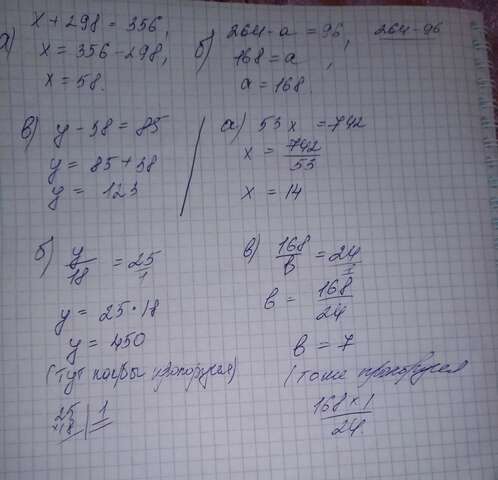 а) x + 298 = 356,
x = 356 - 298,
x = 58.
б) 264 - a = 96, 264 - 96
168 = a,
a = 168.
в) y - 38 = 85
y = 85 + 38
y = 123
а) 53x = 742
x = 742/53
x = 14
б) y/18 = 25/1
y = 25 · 18
y = 450
(тут
25 | 1
18
в) 168/в = 24/1
в = 168/24
в = 7
(тоже
168 × 1/24